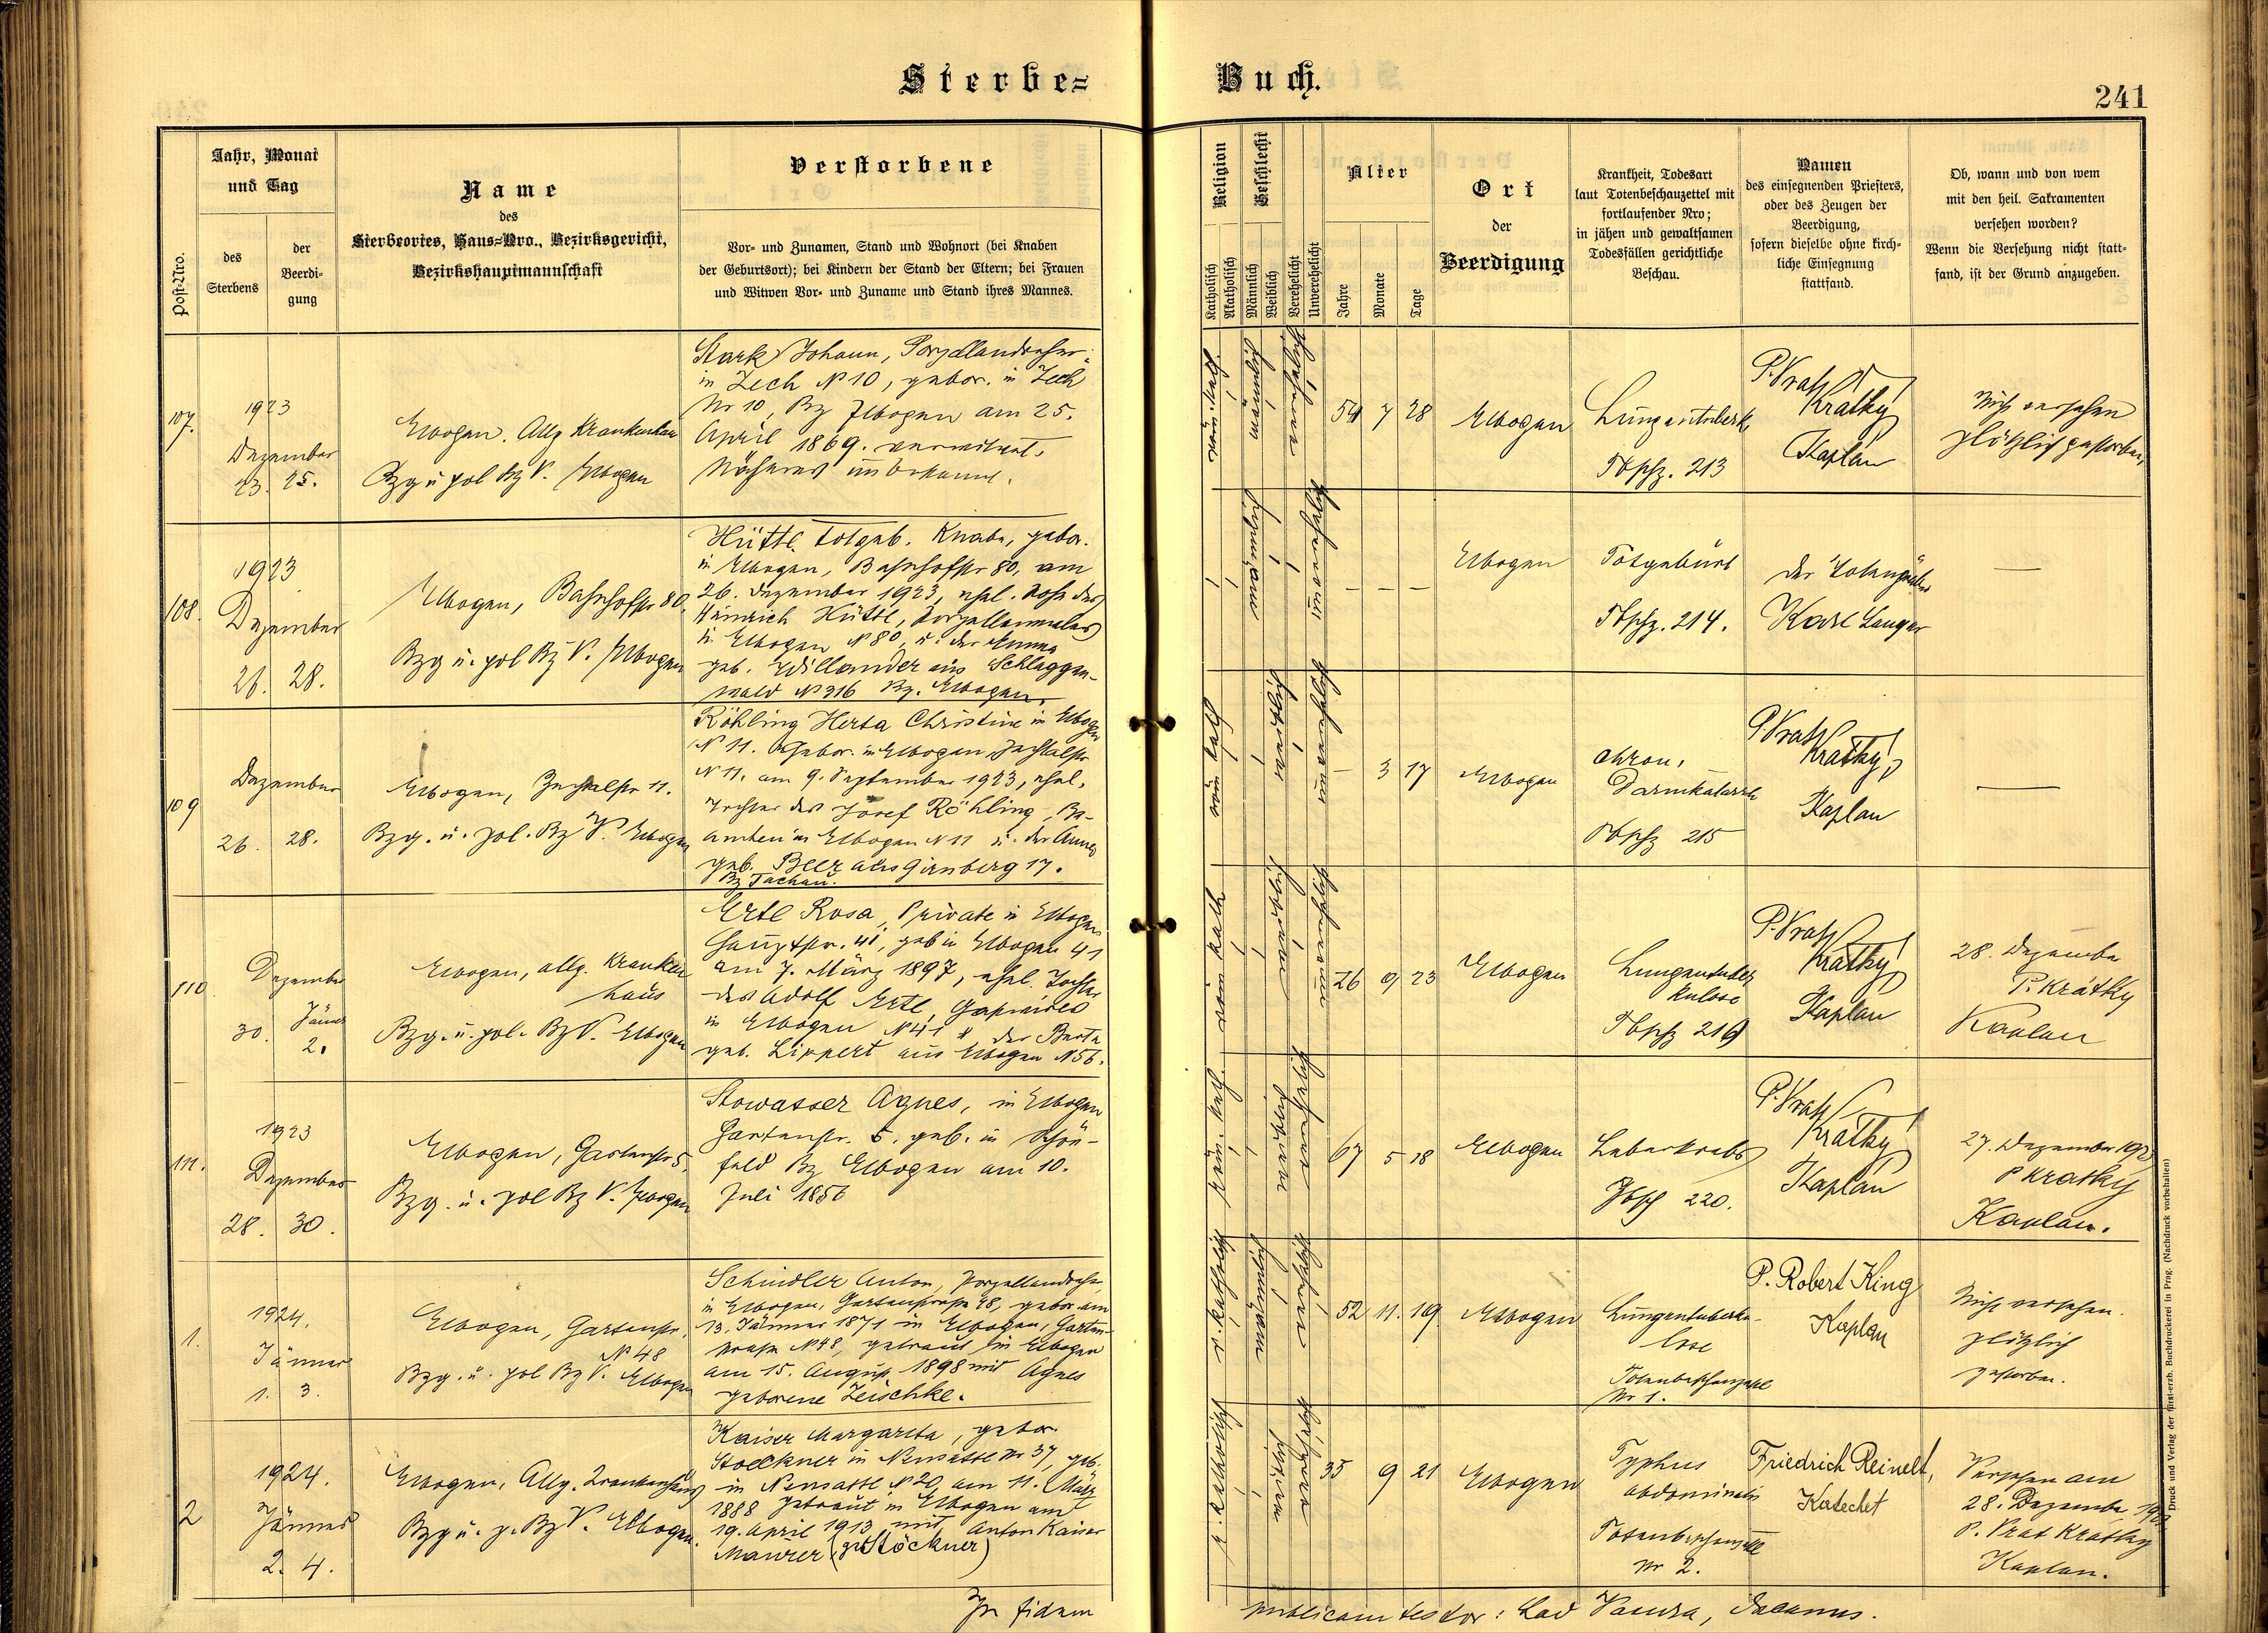 Sterbe=
Buch.
241
Post-Nro.
Jahr, Monat
und Tag
des
Sterbens
der
Beerdi-
gung
Name
des
Sterbeortes, Haus=Nro., Bezirksgericht,
Bezirkshauptmannschaft
Verstorbene
Vor- und Zunamen, Stand und Wohnort (bei Knaben
der Geburtsort); bei Kindern der Stand der Eltern; bei Frauen
und Witwen Vor- und Zuname und Stand ihres Mannes.
Religion
Katholisch
Akatholisch
Geschlecht
Männlich
Weiblich
Verehelicht
Unverehelicht
Alter
Jahre
Monate
Tage
Ort
der
Beerdigung
Krankheit, Todesart
laut Totenbeschauzettel mit
fortlaufender Nro;
in jähen und gewaltsamen
Todesfällen gerichtliche
Beschau.
Namen
des einsegnenden Priesters,
oder des Zeugen der
Beerdigung,
sofern dieselbe ohne kirch-
liche Einsegnung
stattfand.
Ob, wann und von wem
mit den heil. Sakramenten
versehen worden?
Wenn die Versehung nicht statt-
fand, ist der Grund anzugeben.
107.
1923
Dezember
23. 25.
Elbogen. Allg Krankenhau
Bzg u pol Bz V. Elbogen
Stark Johann, Porzellandreher
in Zech N 10, gebor. in Zech
Nr 10, Bz Elbogen am 25.
April 1869. verwitwet.
Näheres unbekannt.
röm. kath.
männlich
verehelicht
54 7 28
Elbogen
Tbschz. 213
P. Vrat Krátký
Kaplan
Nicht versehen
plötzlich gestorben,
108.
1923
Dezember
26. 28.
Elbogen, Bahnhofstr 80.
Bzg u. pol Bz V. Elbogen
Hüttl. totgeb. Knabe, gebor.
in Elbogen, Bahnhofstr 80, am
26. Dezember 1923, ehel. Sohn des
Heinrich Hüttl, Porzellanmaler
in Elbogen N 80 u. der Emma
geb. Willander aus Schlaggen-
wald N 316 Bz. Elbogen.
männlich
unverehelicht
— — —
Elbogen
Totgeburt
Tbschz. 214.
der Totengräber
Karl Langer
—
109
Dezember
26. 28.
Elbogen, Zechtalstr 11.
Bzg. u. pol. Bz V. Elbogen
Röhling Herta Christine in Elbogen
N 11. Gebor. in Elbogen Zechtalstr
N 11. am 9. September 1923, ehel.
Tochter des Josef Röhling, Be-
amten in Elbogen N 11 u. der Anna
geb. Beer aus Girnberg 17.
Bz Tachau.
röm kath
weiblich
unverehelicht
— 3 17
Elbogen
chron.
Darmkatarrh
Tbschz 215
P Vrat Krátký,
Kaplan
—
110
Dezember
30. Jänner
2.
Elbogen, allg. Kranken
haus
Bzg. u. pol. Bz V. Elbogen
Ertl Rosa, Private in Elbogen
Hauptstr. 41, geb in Elbogen 41
am 7. März 1897, ehel. Tochter
des Adolf Ertl,
in Elbogen N 41 & der Berta
geb. Lippert aus Elbogen N 56.
röm kath
weiblich
unverehelicht
26 9 23
Elbogen
Lungentuber
kulose
Tbschz 219
P. Vrat Krátký
Kaplan
28. Dezember
P. Krátký
Kaplan
111.
1923
Dezember
28. 30.
Elbogen, Gartenstr 5.
Bzg. u. pol Bz V. Elbogen
Stowasser Agnes, in Elbogen
Gartenstr. 5. geb. in Schön-
feld Bz Elbogen am 10.
Juli 1856
röm. kath.
weiblich
verehelicht
67 5 18
Elbogen
Leberkrebs
Tbsch 220.
P. Vrat Krátký
Kaplan
27. Dezember 192
P Krátký
Kaplan.
1.
1924.
Jänner
1. 3.
Elbogen, Gartenstr.
N 48
Bzg. u. pol Bz V. Elbogen
Schindler Anton, Porzellandreher,
in Elbogen, Gartenstraße 48, gebor. am
13. Jänner 1871 in Elbogen, Garten-
straße N 48, getraut in Elbogen
am 15. August 1898 mit Agnes
geborene Zeischke.
r. katholisch
männlich
verehelicht
52 11. 19
Elbogen
Lungentuberku-
lose
Totenbeschauzettel
Nr 1.
P. Robert King
Kaplan
Nicht versehen.
plötzlich
gestorben.
2
1924.
Jänner
2. 4.
Elbogen, Allg. Krankenhaus
Bzg u. p. Bz V. Elbogen.
Kaiser Margareta, gebor.
Stoeckner in Neusattl Nr 37, geb.
in Neusattl N 20, am 11. März
1888 getraut in Elbogen am
19. April 1913 mit Anton Kaiser
Maurer (geb Stöckner)
r. katholisch
weiblich
verehelicht
35 9 21
Elbogen
Typhus
abdominalis
Totenbeschauzettel
Nr 2.
Friedrich Reinelt,
Katechet
Versehen am
28. Dezember 192
P. Vrat Krátký
Kaplan.
In fidem
publicam testor: Lad Vaeura, Decanus.
Druck und Verlag der fürst-erzb. Buchdruckerei in Prag. (Nachdruck vorbehalten)